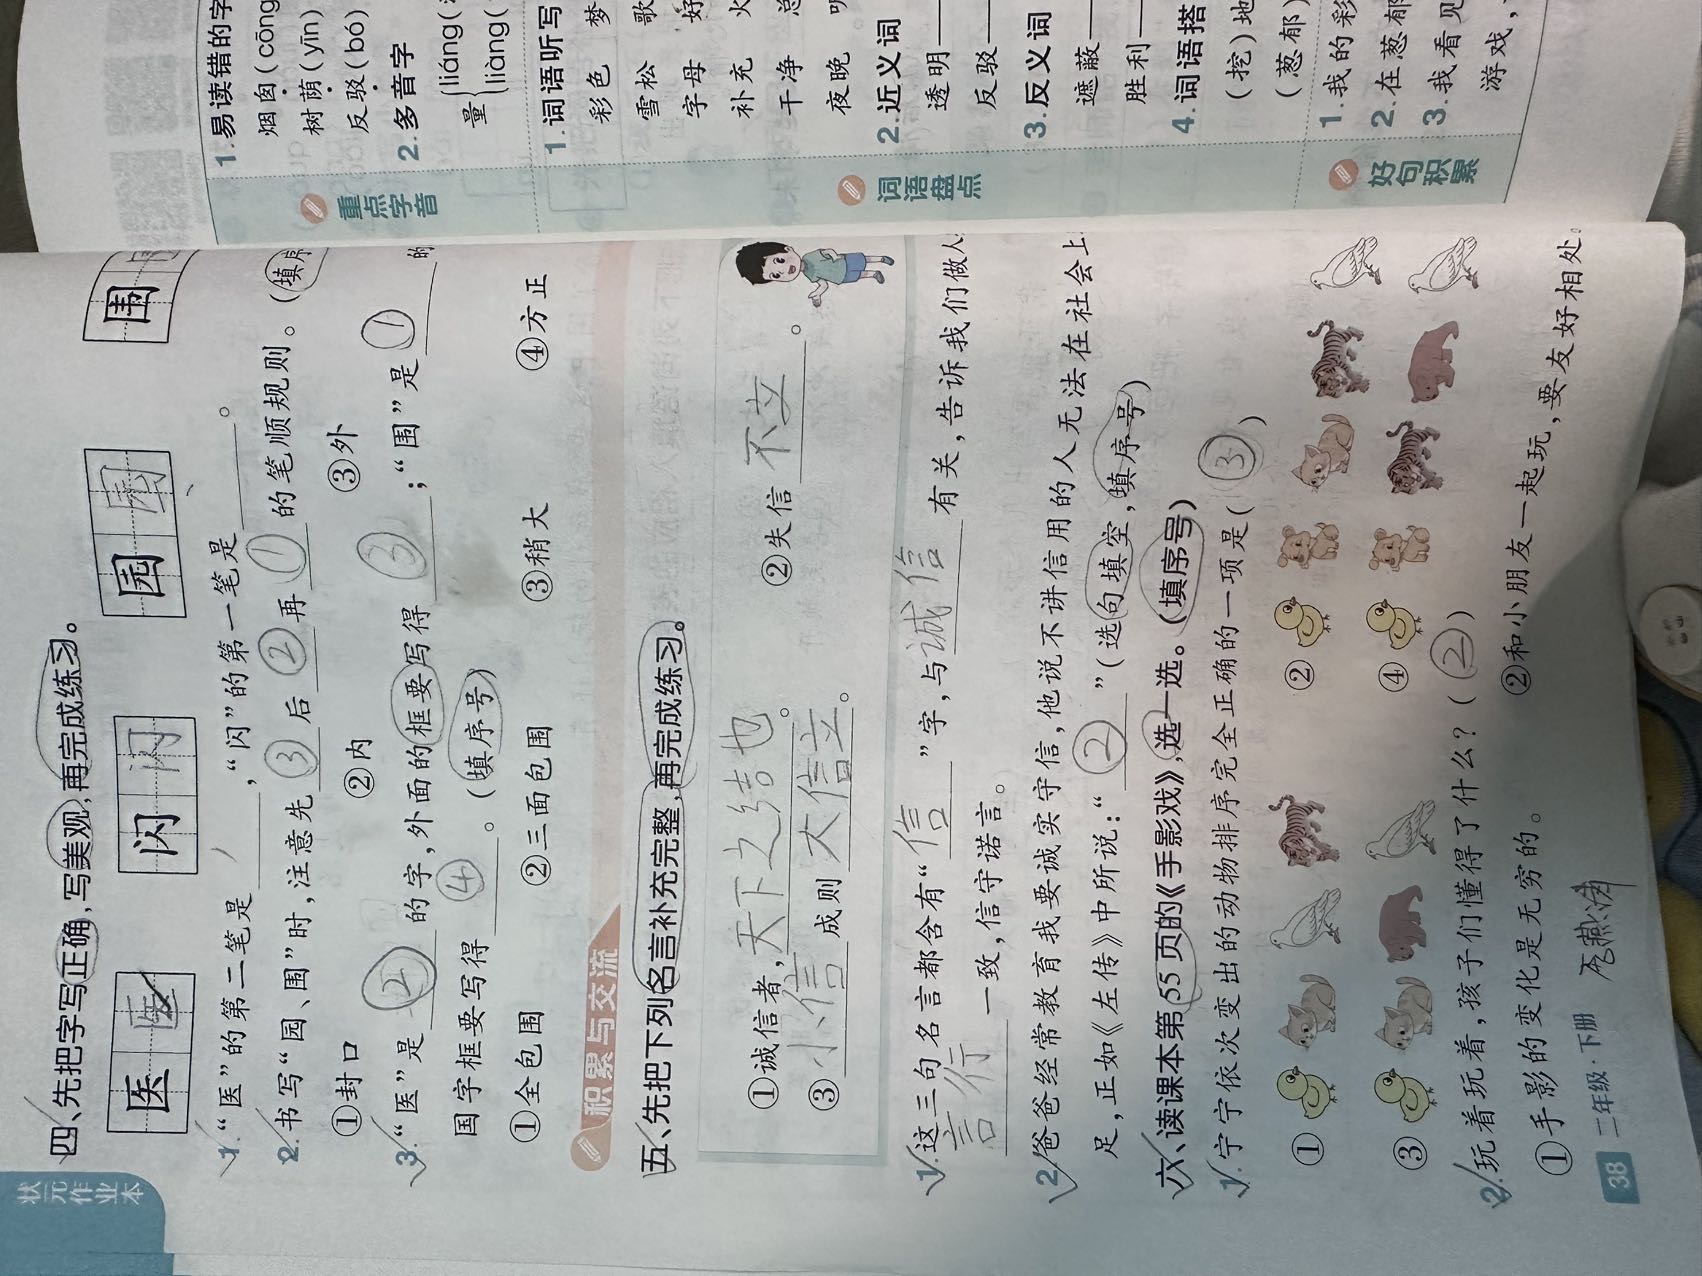 状元作业本
四、先把字写正确,写美观,再完成练习。
医 医 闪 闪 园 园 围
1.“医”的第二笔是 丿 ,“闪”的第一笔是 丶 。
2.书写“园、围”时,注意先 ③ 后 ② 再 ① 的笔顺规则。(填序
①封口 ②内 ③外
3.“医”是 ② 的字,外面的框要写得 ③ ;“围”是 ① 的
国字框要写得 ④ 。(填序号)
①全包围 ②三面包围 ③稍大 ④方正
积累与交流
五、先把下列名言补充完整,再完成练习。
①诚信者,天下之结也。 ②失信不立。
③小信成则大信立。
1.这三句名言都含有“信”字,与诚信有关,告诉我们做人
言行一致,信守诺言。
2.爸爸经常教育我要诚实守信,他说不讲信用的人无法在社会上
足,正如《左传》中所说:“ ② ”(选句填空,填序号)
六、读课本第55页的《手影戏》,选一选。(填序号)
1.宁宁依次变出的动物排序完全正确的一项是( ③ )
① ②
③ ④
2.玩着玩着,孩子们懂得了什么?( ② )
①手影的变化是无穷的。 ②和小朋友一起玩,要友好相处。
38 二年级·下册
重点字音
1.易读错的字
烟囱(cōng
树荫(yīn)
反驳(bó)
2.多音字
量{liáng(
liàng(
词语盘点
1.词语听写
彩色 梦
雪松 歌
字母 好
补充 火
干净 总
夜晚
2.近义词
透明
反驳
3.反义词
遮蔽
胜利
4.词语搭
(挖)地
(葱郁)
好句积累
1.我的彩
2.在葱郁
3.我看见
游戏,